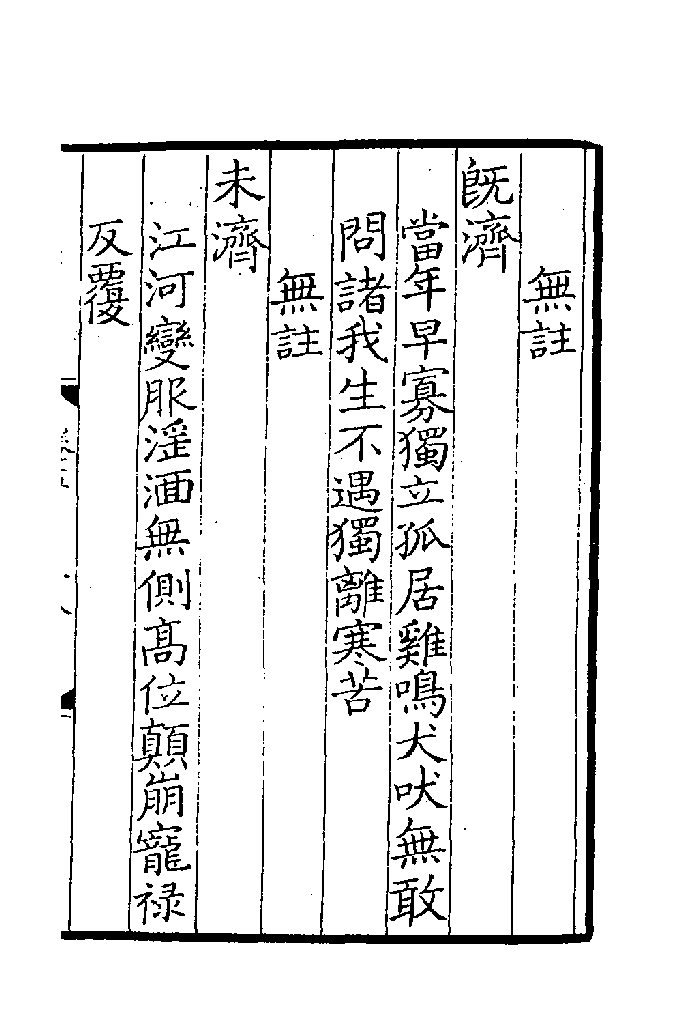 無註
既濟
當年早寡獨立孤居雞鳴犬吠無敢
問諸我生不遇獨離寒苦
無註
未濟
江河變服淫湎無側髙位顛崩寵禄
反覆